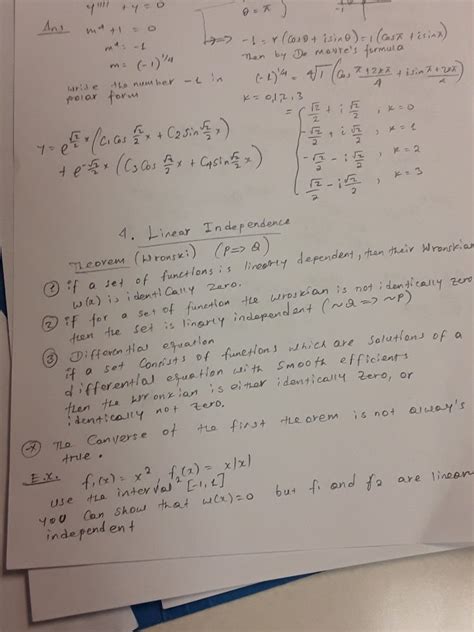 y'''' + y = 0
θ = π
-1
Ans m⁴ + 1 = 0
m⁴ = -1
m = (-1)^1/4
⇒ -1 = r (cosθ + i sinθ) = 1 (cosπ + i sinπ)
Then by De moivre's formula
write the number -1 in
polar form
(-1)^1/4 = ⁴√1 (cos π+2kπ/4 + i sin π+2kπ/4)
k = 0,1,2,3
y = e^√2/2 x (C1 cos √2/2 x + C2 sin √2/2 x)
+ e^-√2/2 x (C3 cos √2/2 x + C4 sin √2/2 x)
= { √2/2 + i √2/2 , k=0
-√2/2 + i √2/2 , k=1
-√2/2 - i √2/2 , k=2
√2/2 - i √2/2 , k=3
4. Linear Independence
Theorem (Wronski) (P => Q)
① if a set of functions is linearly dependent, then their Wronskian
W(x) is identically zero.
② if for a set of function the wroskian is not identically zero
then the set is linarly independent (~Q => ~P)
③ Differential equation
if a set consists of functions which are solutions of a
differential equation with smooth efficients
then the wronxian is either identically zero, or
identically not zero.
The converse of the first theorem is not always
true.
E.x. f1(x) = x² f2(x) = x|x|
use the interval [-1,1]
you can show that w(x)=0 but f1 and f2 are linear
independent